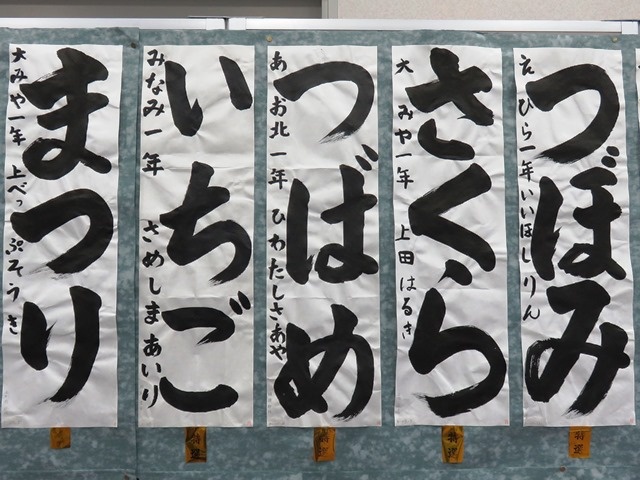 つぼみ
ひら一年 いいほし りん
さくら
大みや一年 上田 はるき
つばめ
あお北一年 ひわたしさあや
いちご
みなみ一年 さめしまあいり
まつり
大みや一年 上べっぷそうき
特選
特選
特選
特選